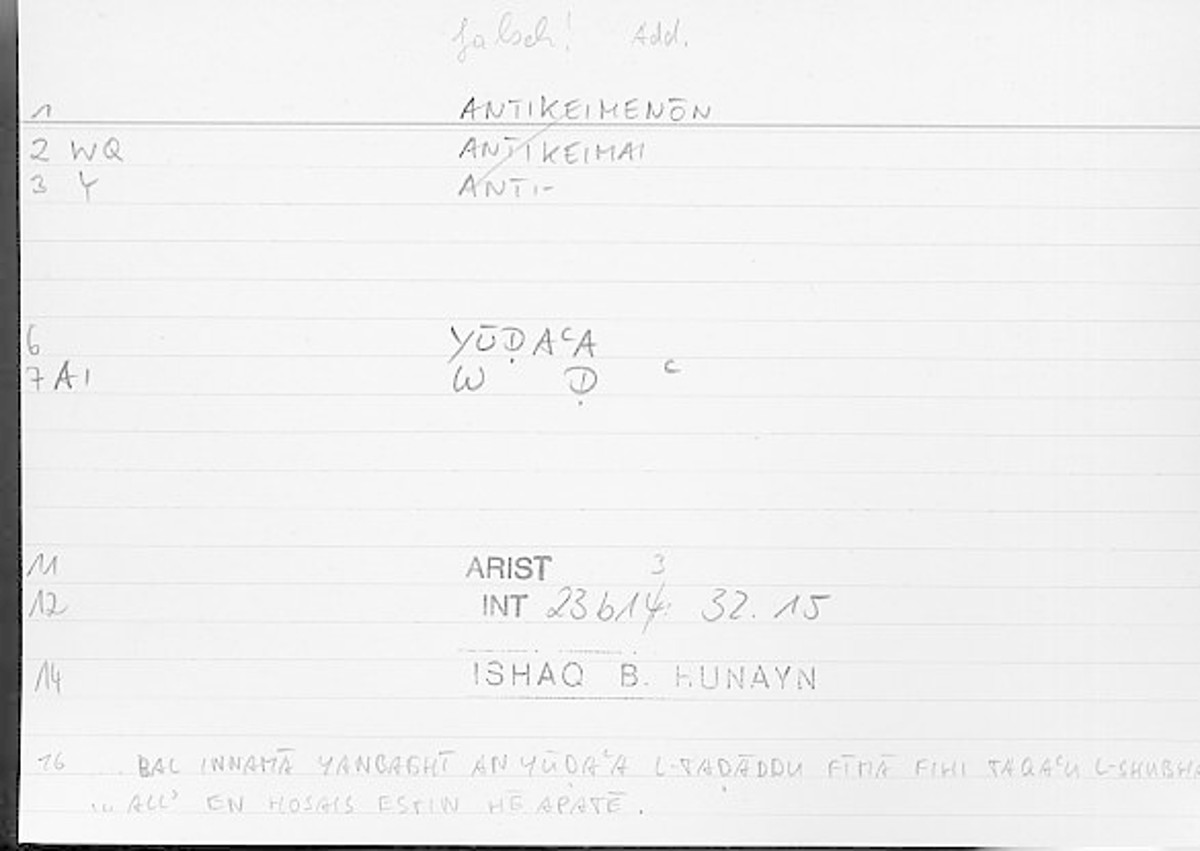 falsch! Add.
1 ANTIKEIMENŌN
2 WQ ANTIKEIMAI
3 Y ANTI-
6 YŪḌAʿA
7 A1 W Ḍ ʿ
11 ARIST 3
12 INT 23b14: 32.15
14 ISHAQ B. HUNAYN
16 ... BAL INNAMĀ YANBAGHĪ AN YŪḌAʿA L-TAḌĀDDU FĪMĀ FIHI TAQAʿU L-SHUBHA
... ALL' EN HOSAIS ESTIN HĒ APATĒ.